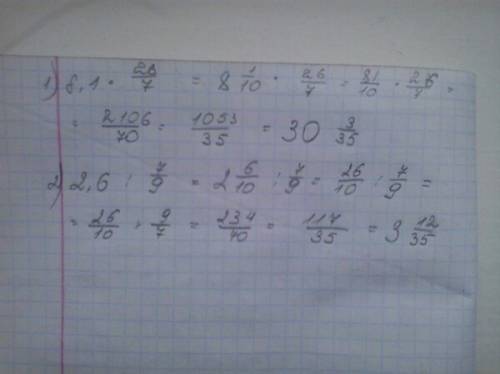 1) 8,1 · 26/7 = 8 1/10 · 26/7 = 81/10 · 26/7 =
= 2106/70 = 1053/35 = 30 3/35
2) 2,6 : 7/9 = 2 6/10 : 7/9 = 26/10 : 7/9 =
= 26/10 : 9/7 = 234/70 = 117/35 = 3 12/35